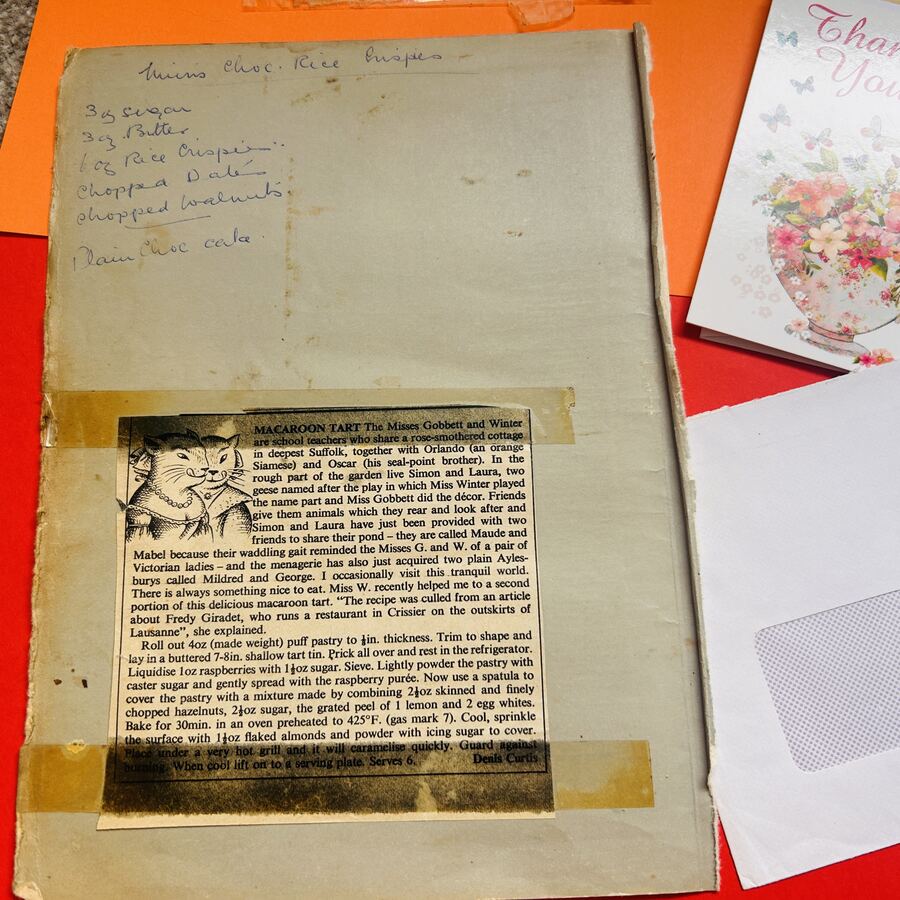 Choc. Rice Crispes
3oz sugar
3oz. Butter
oz Rice Crispies
Chopped Dates
chopped walnuts
Plain Choc cake.
Than
You
MACAROON TART The Misses Gobbett and Winter
are school teachers who share a rose-smothered cottage
in deepest Suffolk, together with Orlando (an orange
Siamese) and Oscar (his seal-point brother). In the
rough part of the garden live Simon and Laura, two
geese named after the play in which Miss Winter played
the name part and Miss Gobbett did the décor. Friends
give them animals which they rear and look after and
Simon and Laura have just been provided with two
friends to share their pond – they are called Maude and
Mabel because their waddling gait reminded the Misses G. and W. of a pair of
Victorian ladies – and the menagerie has also just acquired two plain Ayles-
burys called Mildred and George. I occasionally visit this tranquil world.
There is always something nice to eat. Miss W. recently helped me to a second
portion of this delicious macaroon tart. “The recipe was culled from an article
about Fredy Giradet, who runs a restaurant in Crissier on the outskirts of
Lausanne”, she explained.
Roll out 4oz (made weight) puff pastry to ¼in. thickness. Trim to shape and
lay in a buttered 7-8in. shallow tart tin. Prick all over and rest in the refrigerator.
Liquidise 1oz raspberries with 1½oz sugar. Sieve. Lightly powder the pastry with
caster sugar and gently spread with the raspberry purée. Now use a spatula to
cover the pastry with a mixture made by combining 2½oz skinned and finely
chopped hazelnuts, 2½oz sugar, the grated peel of 1 lemon and 2 egg whites.
Bake for 30min. in an oven preheated to 425°F. (gas mark 7). Cool, sprinkle
the surface with 1½oz flaked almonds and powder with icing sugar to cover.
Place under a very hot grill and it will caramelise quickly. Guard against
burning. When cool lift on to a serving plate. Serves 6. Denis Curtis